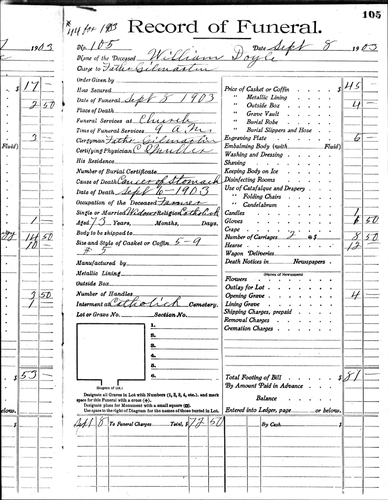 105
# 44 for 1903
Record of Funeral.
No. 105 Date Sept 8 1903
Name of the Deceased William Doyle
Charge to Father Gilmartin
Order Given by
How Secured
Date of Funeral Sept 8 1903
Place of Death
Funeral Services at Church
Time of Funeral Services 9 A.M.
Clergyman Father Gilmartin
Certifying Physician
His Residence
Number of Burial Certificate
Cause of Death Cancer of Stomach
Date of Death Sept 6 - 1903
Occupation of the Deceased Farmer
Single or Married Widower Religion Catholick
Aged 73 Years, Months, Days.
Body to be shipped to
Size and Style of Casket or Coffin, 5-9
# 5
Manufactured by
Metallic Lining
Outside Box
Number of Handles
Interment at Catholick Cemetery.
Lot or Grave No. Section No.
1.
2.
3.
4.
5.
6.
(Diagram of Lot.)
Designate all Graves in Lot with Numbers (1, 2, 3, 4, etc.), and mark
space for this Funeral with a cross (+).
Designate place for Monument with a small square (□).
Use space to the right of Diagram for the names of those buried in Lot.
Price of Casket or Coffin $ 45
" Metallic Lining
" Outside Box 4
" Grave Vault
" Burial Robe
" Burial Slippers and Hose
Engraving Plate
Embalming Body (with Fluid) 6
Washing and Dressing
Shaving
Keeping Body on Ice
Disinfecting Rooms
Use of Catafalque and Drapery
" Folding Chairs
" Candelabrum
Candles
Gloves 50
Crape
Number of Carriages 2 @ $ 8 50
Hearse 12
Wagon Deliveries
Death Notices in Newspapers
(Names of Newspapers)
Flowers
Outlay for Lot
Opening Grave 4
Lining Grave
Shipping Charges, prepaid
Removal Charges
Cremation Charges
Total Footing of Bill $ 81
By Amount Paid in Advance
Balance
Entered into Ledger, page or below.
Sept 8 To Funeral Charges Total, $ 72 50 By Cash $
1903
$ 17
2 50
3
Fluid)
1
14 50
10
3 50
1
$ 53
below.
$